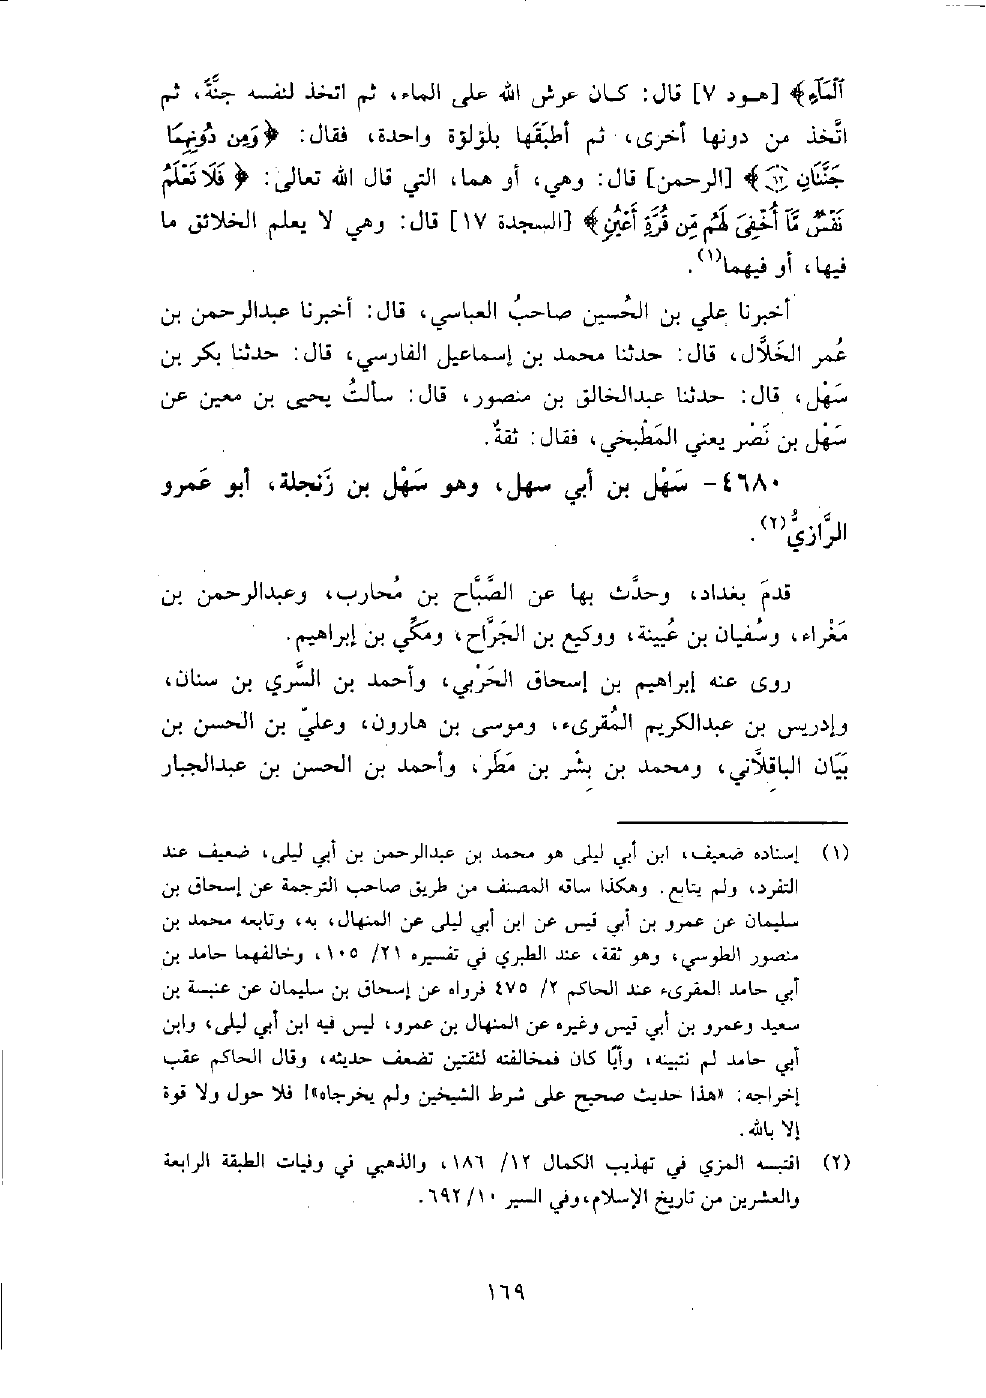 ٱلۡمَآءِ﴾ [هود ٧] قال: كان عرش الله على الماء، ثم اتخذ لنفسه جنَّةً، ثم
اتَّخذ من دونها أخرى، ثم أطبَقَها بلؤلؤة واحدة، فقال: ﴿وَمِن دُونِهِمَا
جَنَّتَانِ ۝٦٢﴾ [الرحمن] قال: وهي، أو هما، التي قال الله تعالى: ﴿فَلَا تَعۡلَمُ
نَفۡسٞ مَّآ أُخۡفِيَ لَهُم مِّن قُرَّةِ أَعۡيُنٖ﴾ [السجدة ١٧] قال: وهي لا يعلم الخلائق ما
فيها، أو فيهما(١).
أخبرنا علي بن الحُسين صاحبُ العباسي، قال: أخبرنا عبدالرحمن بن
عُمر الخَلَّال، قال: حدثنا محمد بن إسماعيل الفارسي، قال: حدثنا بكر بن
سَهْل، قال: حدثنا عبدالخالق بن منصور، قال: سألتُ يحيى بن معين عن
سَهْل بن نَصْر يعني المَطْبخي، فقال: ثقةٌ.
٤٦٨٠- سَهْل بن أبي سهل، وهو سَهْل بن زَنجلة، أبو عَمرو
الرَّازيُّ(٢).
قدمَ بغداد، وحدَّث بها عن الصَّبَّاح بن مُحارب، وعبدالرحمن بن
مَغْراء، وسُفيان بن عُيينة، ووكيع بن الجَرَّاح، ومَكِّي بن إبراهيم.
روى عنه إبراهيم بن إسحاق الحَرْبي، وأحمد بن السَّري بن سنان،
وإدريس بن عبدالكريم المُقرىء، وموسى بن هارون، وعليّ بن الحسن بن
بَيَان الباقلَّاني، ومحمد بن بِشْر بن مَطَر، وأحمد بن الحسن بن عبدالجبار
(١) إسناده ضعيف، ابن أبي ليلى هو محمد بن عبدالرحمن بن أبي ليلى، ضعيف عند
التفرد، ولم يتابع. وهكذا ساقه المصنف من طريق صاحب الترجمة عن إسحاق بن
سليمان عن عمرو بن أبي قيس عن ابن أبي ليلى عن المنهال، به، وتابعه محمد بن
منصور الطوسي، وهو ثقة، عند الطبري في تفسيره ٢١/ ١٠٥، وخالفهما حامد بن
أبي حامد المقرىء عند الحاكم ٢/ ٤٧٥ فرواه عن إسحاق بن سليمان عن عنبسة بن
سعيد وعمرو بن أبي قيس وغيره عن المنهال بن عمرو، ليس فيه ابن أبي ليلى، وابن
أبي حامد لم نتبينه، وأيًا كان فمخالفته لثقتين تضعف حديثه، وقال الحاكم عقب
إخراجه: «هذا حديث صحيح على شرط الشيخين ولم يخرجاه»! فلا حول ولا قوة
إلا بالله.
(٢) اقتبسه المزي في تهذيب الكمال ١٢/ ١٨٦، والذهبي في وفيات الطبقة الرابعة
والعشرين من تاريخ الإسلام، وفي السير ١٠/ ٦٩٢.
١٦٩